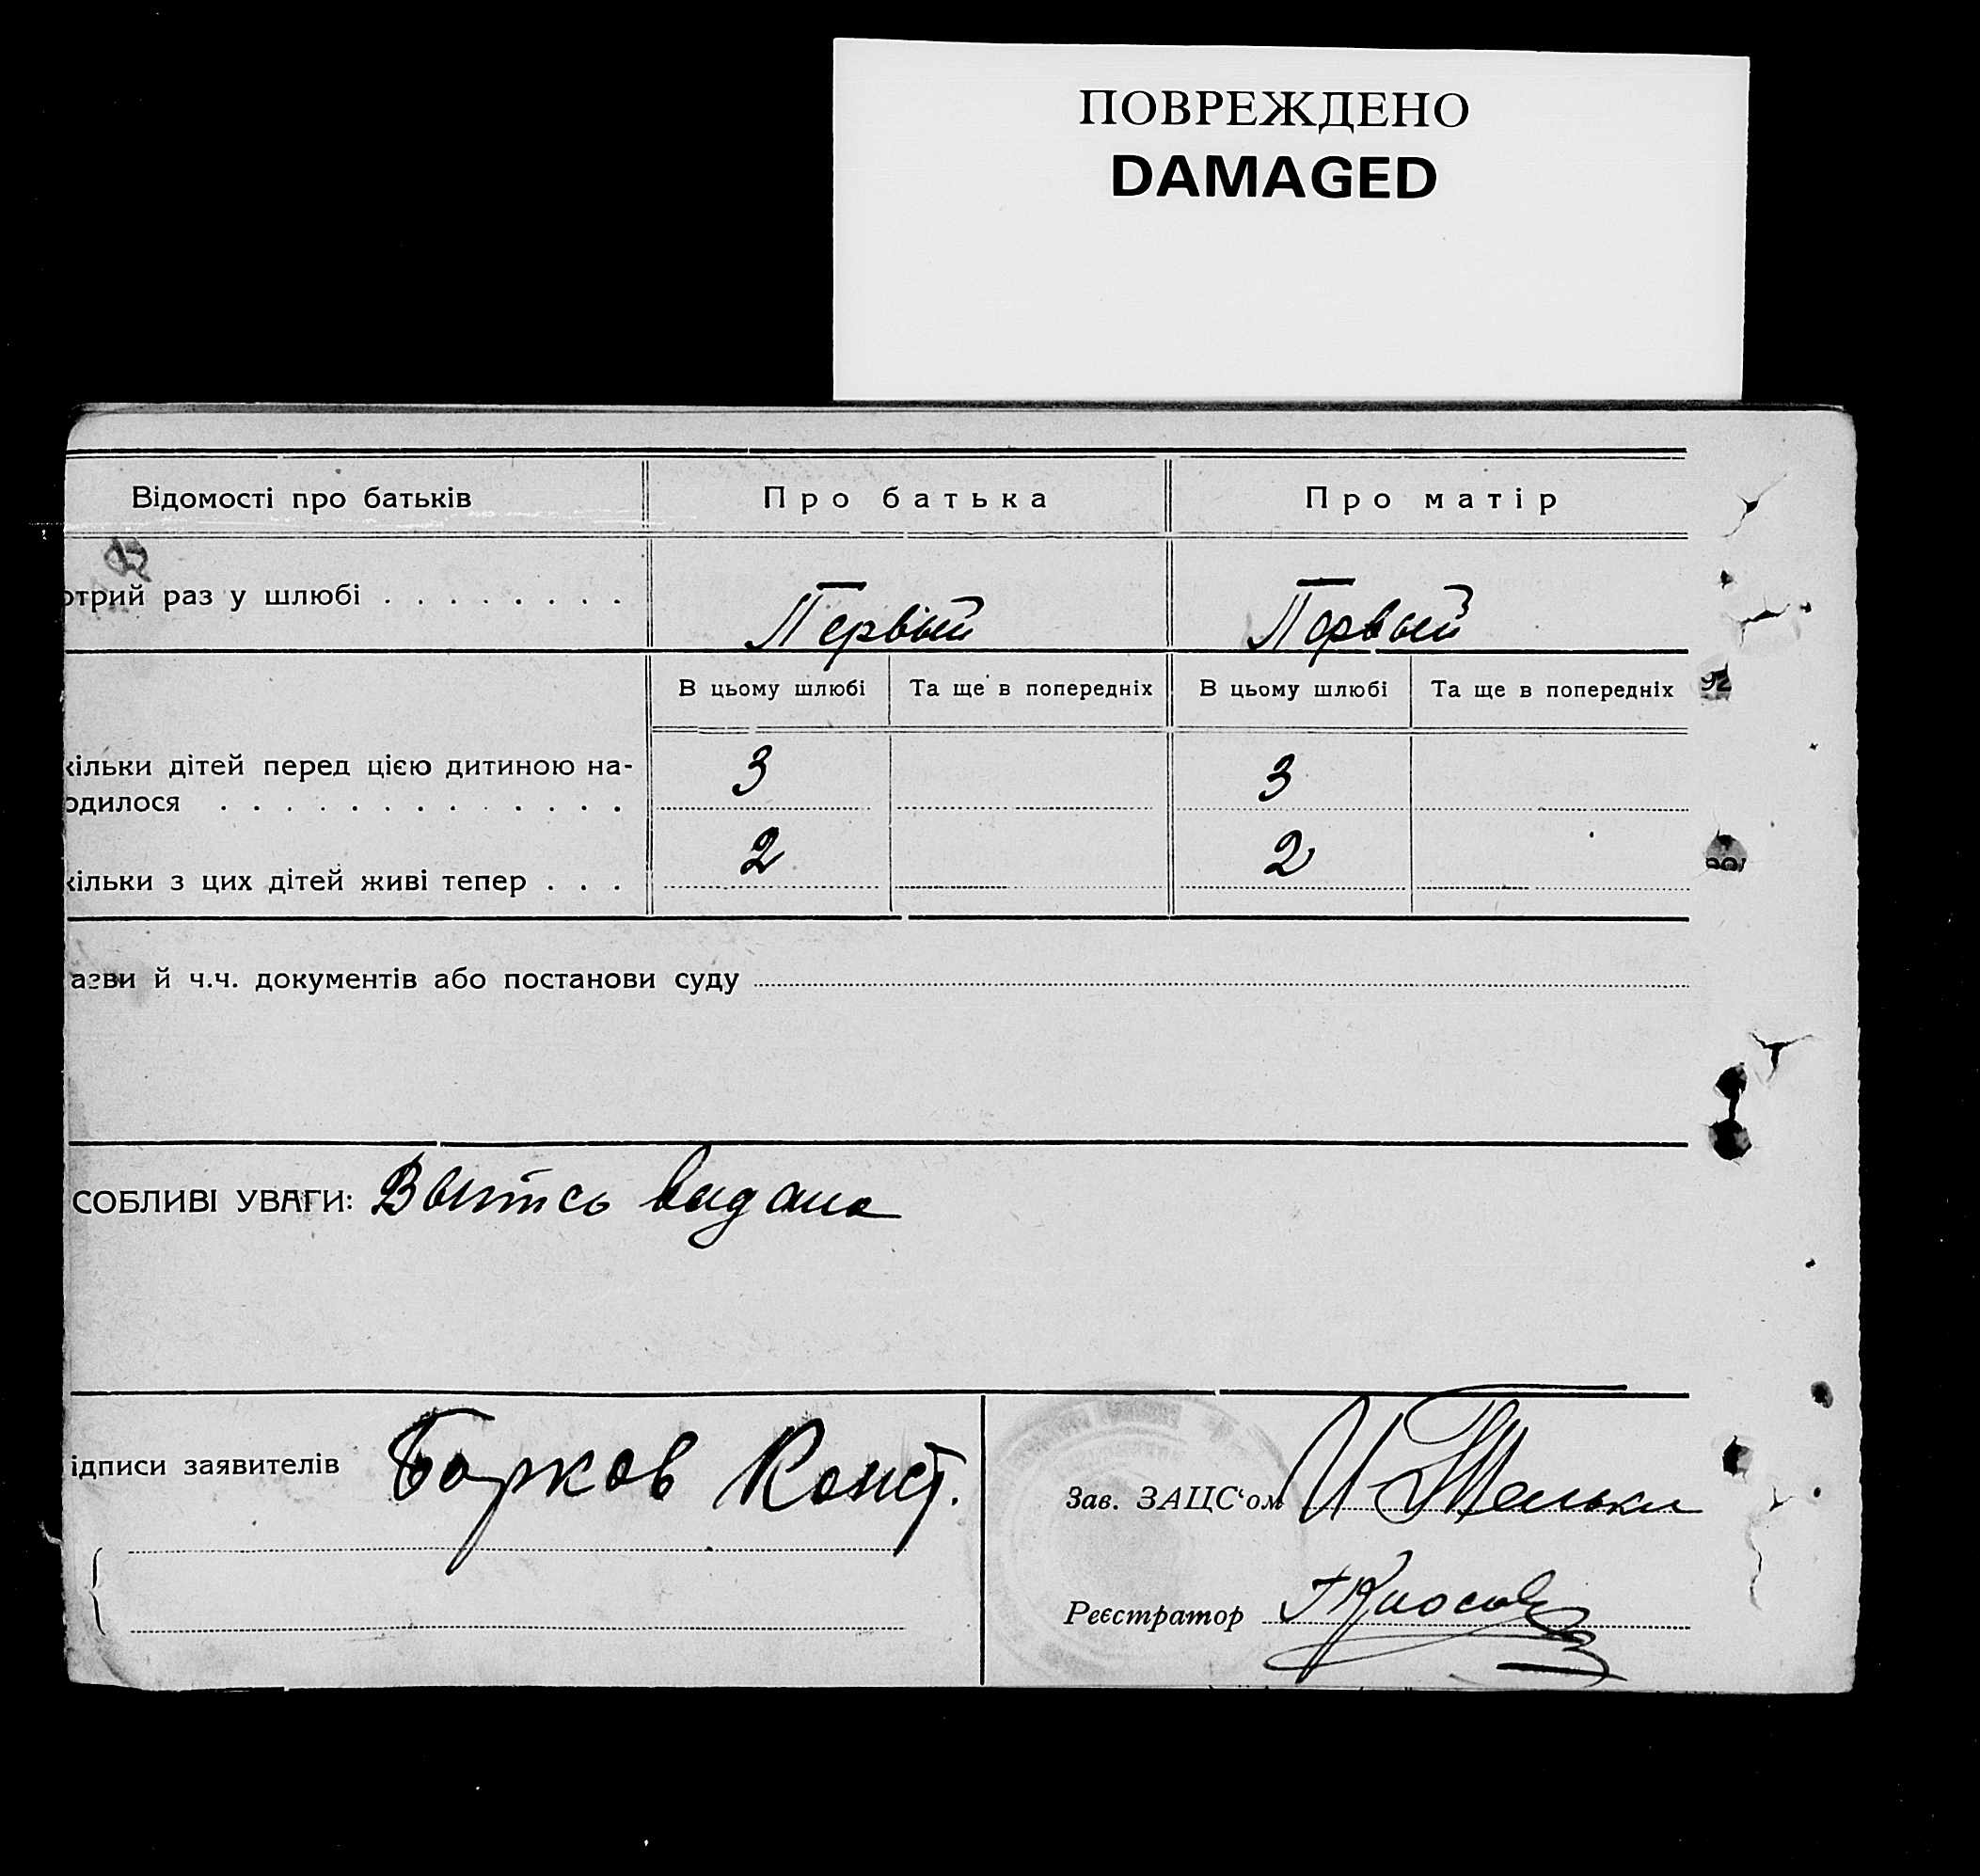 ПОВРЕЖДЕНО
DAMAGED
Відомості про батьків Про батька Про матір
отрий раз у шлюбі . . . . . . . . Первый Первый
В цьому шлюбі Та ще в попередніх В цьому шлюбі Та ще в попередніх
кільки дітей перед цією дитиною на-
одилося . . . . . . . . . . . . . 3 3
кільки з цих дітей живі тепер . . . 2 2
азви й ч.ч. документів або постанови суду
СОБЛИВІ УВАГИ: Выпись выдана
ідписи заявителів Барков Конст.
Зав. ЗАЦС‘ом
Реєстратор